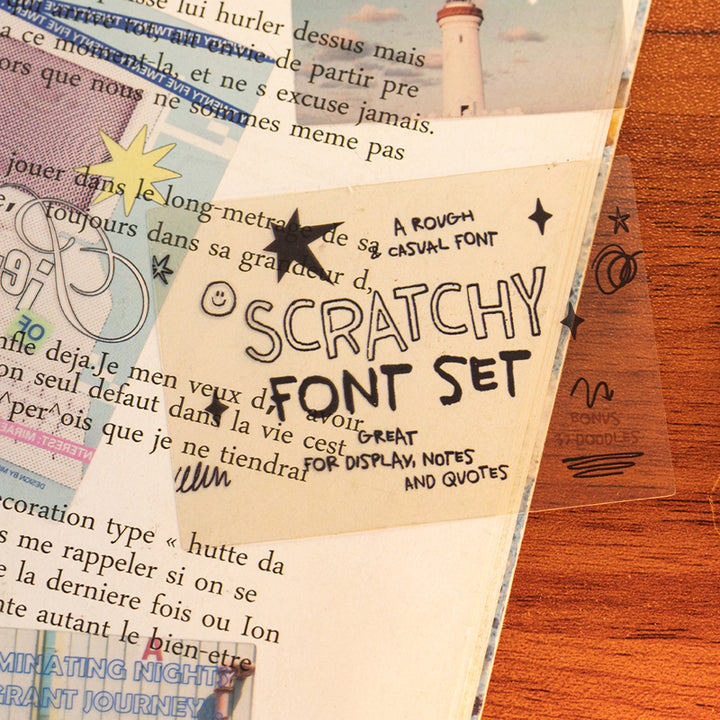 lui hurler dessus mais
a ce moment-la, et ne s
de partir pre
ors que nous ne sommes
excuse jamais.
meme pas
jouer dans le long-metrage de sa
toujours dans sa grandeur d,
A ROUGH
& CASUAL FONT
SCRATCHY
FONT SET
GREAT
FOR DISPLAY, NOTES
AND QUOTES
BONUS
37 DOODLES
nfle deja.Je men veux d, avoir
on seul defaut dans la vie cest
^per^ois que je ne tiendrai
ecoration type « hutte da
s me rappeler si on se
e la derniere fois ou Ion
nte autant le bien-etre
MINATING NIGHT
GRANT JOURNEY